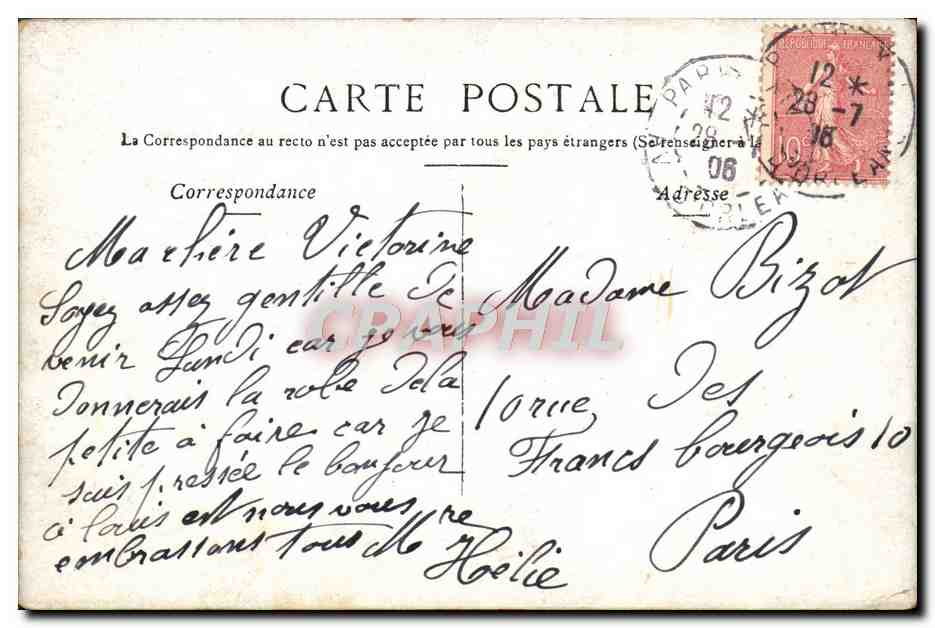 CARTE POSTALE
La Correspondance au recto n'est pas acceptée par tous les pays étrangers (Se renseigner à la
Correspondance
Ma chère Victorine
Soyez assez gentille de
venir Lundi car je vous
donnerais la robe dela
petite à faire car je
suis pressée le bonjour
à louis est nous vous
embrassons tous Mre
Hoelie
Adresse
Madame Bizot
10 rue des
Francs bourgeois 10
Paris
REPUBLIQUE FRANÇAISE
10
PARIS
12
28 -7
06
ORLEA
12
28 -7
06
ORLEAN
CPAPHIL